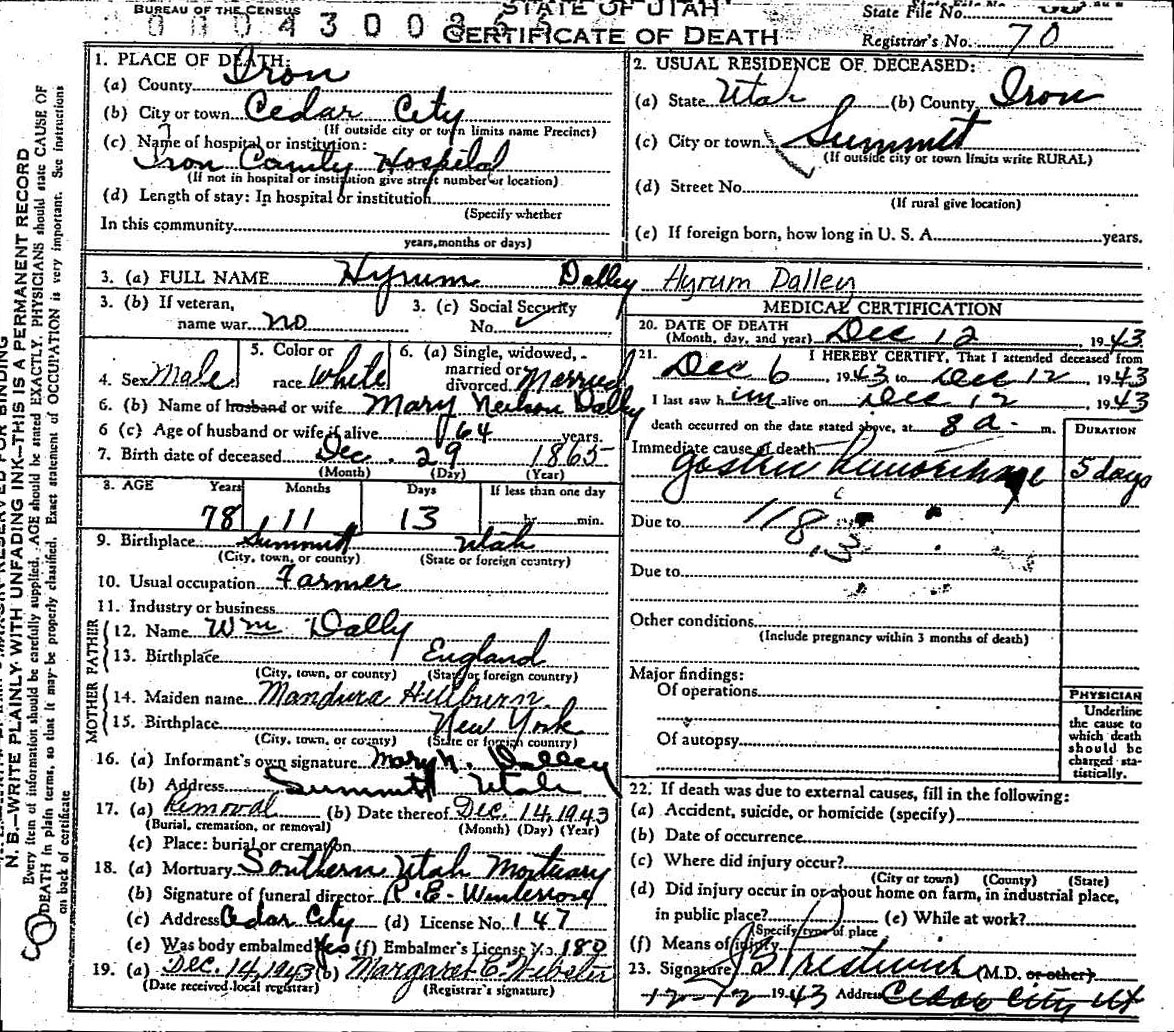 BUREAU OF THE CENSUS
STATE OF UTAH
CERTIFICATE OF DEATH
State File No.
Registrar's No. 70
N. B.—WRITE PLAINLY WITH UNFADING INK—THIS IS A PERMANENT RECORD
Every item of information should be carefully supplied. AGE should be stated EXACTLY. PHYSICIANS should state CAUSE OF
DEATH in plain terms, so that it may be properly classified. Exact statement of OCCUPATION is very important. See instructions
on back of certificate
1. PLACE OF DEATH:
(a) County Iron
(b) City or town Cedar City
(If outside city or town limits name Precinct)
(c) Name of hospital or institution:
Iron County Hospital
(If not in hospital or institution give street number or location)
(d) Length of stay: In hospital or institution
(Specify whether
In this community
years, months or days)
2. USUAL RESIDENCE OF DECEASED:
(a) State Utah (b) County Iron
(c) City or town Summit
(If outside city or town limits write RURAL)
(d) Street No.
(If rural give location)
(e) If foreign born, how long in U. S. A. years.
3. (a) FULL NAME Hyrum Dalley Hyrum Dalley
3. (b) If veteran,
name war no
3. (c) Social Security
No.
4. Sex Male
5. Color or
race White
6. (a) Single, widowed,
married or
divorced Married
6. (b) Name of husband or wife Mary Neilson Dally
6 (c) Age of husband or wife if alive 64 years.
7. Birth date of deceased Dec. 29 1865
(Month) (Day) (Year)
8. AGE Years Months Days If less than one day
78 11 13 hr. min.
9. Birthplace Summit Utah
(City, town, or county) (State or foreign country)
10. Usual occupation Farmer
11. Industry or business
FATHER
12. Name Wm Dally
13. Birthplace England
(City, town, or county) (State or foreign country)
MOTHER
14. Maiden name Mandura
15. Birthplace New York
(City, town, or county) (State or foreign country)
16. (a) Informant's own signature Mary N. Dalley
(b) Address Summit Utah
17. (a) Removal (b) Date thereof Dec. 14, 1943
(Burial, cremation, or removal) (Month) (Day) (Year)
(c) Place: burial or cremation
18. (a) Mortuary Southern Utah Mortuary
(b) Signature of funeral director R. E. Winterrose
(c) Address Cedar City (d) License No. 147
(e) Was body embalmed yes (f) Embalmer's License No. 180
19. (a) Dec. 14, 1943 (b) Margaret E. Webster
(Date received local registrar) (Registrar's signature)
MEDICAL CERTIFICATION
20. DATE OF DEATH
(Month, day, and year) Dec 12 1943
21. I HEREBY CERTIFY, That I attended deceased from
Dec 6, 1943 to Dec 12 1943
I last saw him alive on Dec 12, 1943
death occurred on the date stated above, at 8 a. m.
DURATION
Immediate cause of death
Gastric hemorrhage 5 days
Due to 118
Due to
Other conditions
(Include pregnancy within 3 months of death)
Major findings:
Of operations
Of autopsy
PHYSICIAN
Underline
the cause to
which death
should be
charged sta-
tistically.
22. If death was due to external causes, fill in the following:
(a) Accident, suicide, or homicide (specify)
(b) Date of occurrence
(c) Where did injury occur?
(City or town) (County) (State)
(d) Did injury occur in or about home on farm, in industrial place,
in public place? (e) While at work?
(Specify type of place
(f) Means of injury
23. Signature (M.D. or other)
12-12 1943 Address Cedar City Ut